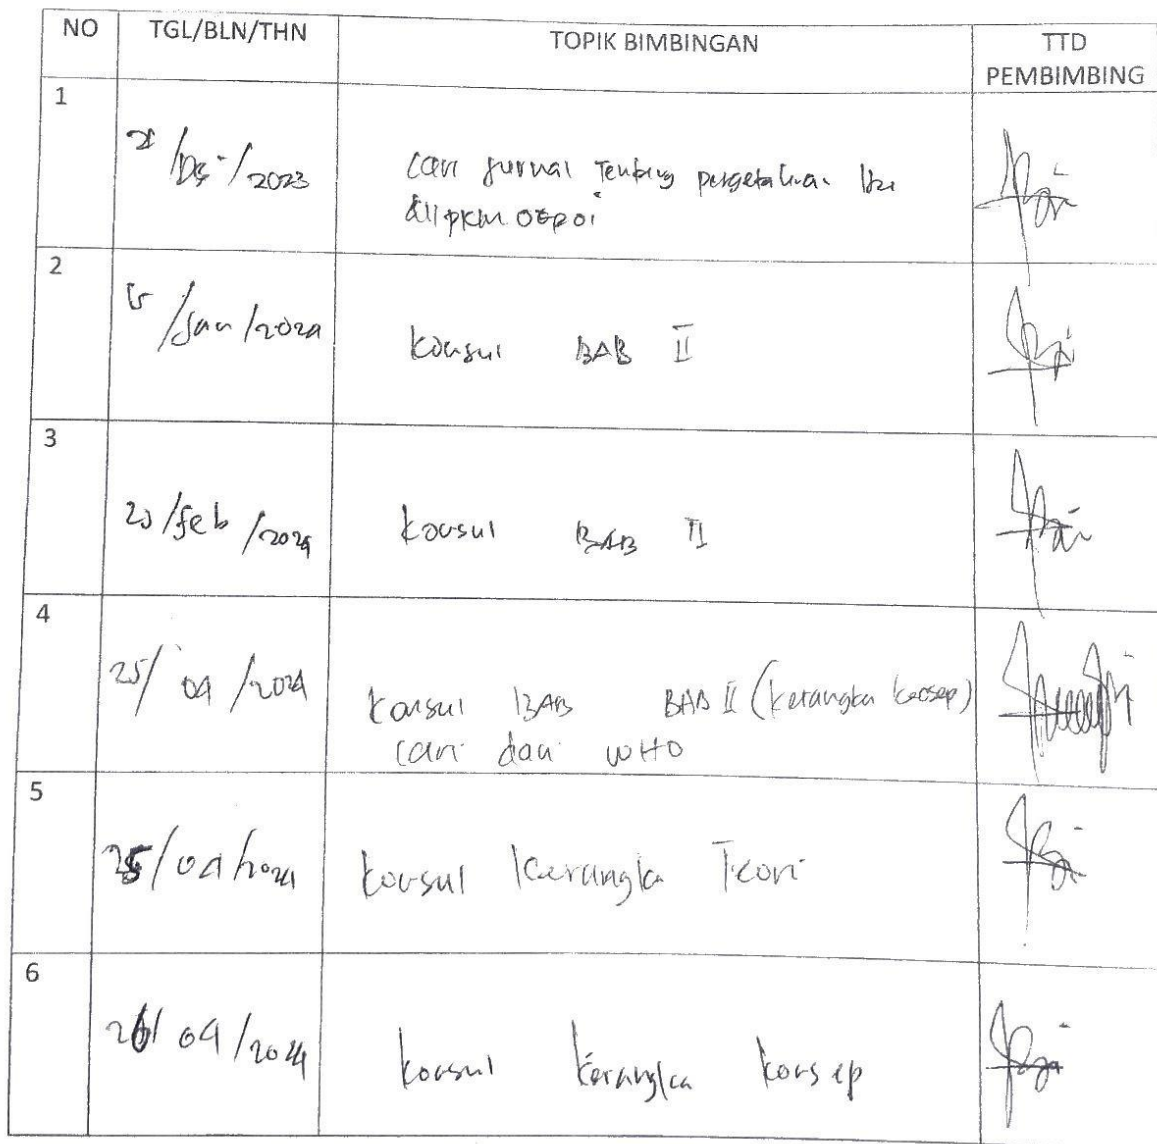 NO TGL/BLN/THN TOPIK BIMBINGAN TTD
PEMBIMBING
1
/Des/2023 Cari Jurnal Tentang pengetahuan Ibu
di PKM
2
/Jan/2024 Konsul BAB II
3
/feb/2024 Konsul BAB II
4
25/04/2024 Konsul BAB BAB II (Kerangka Konsep)
Cari dari WHO
5
25/04/2024 Konsul Kerangka Teori
6
26/04/2024 Konsul Kerangka Konsep